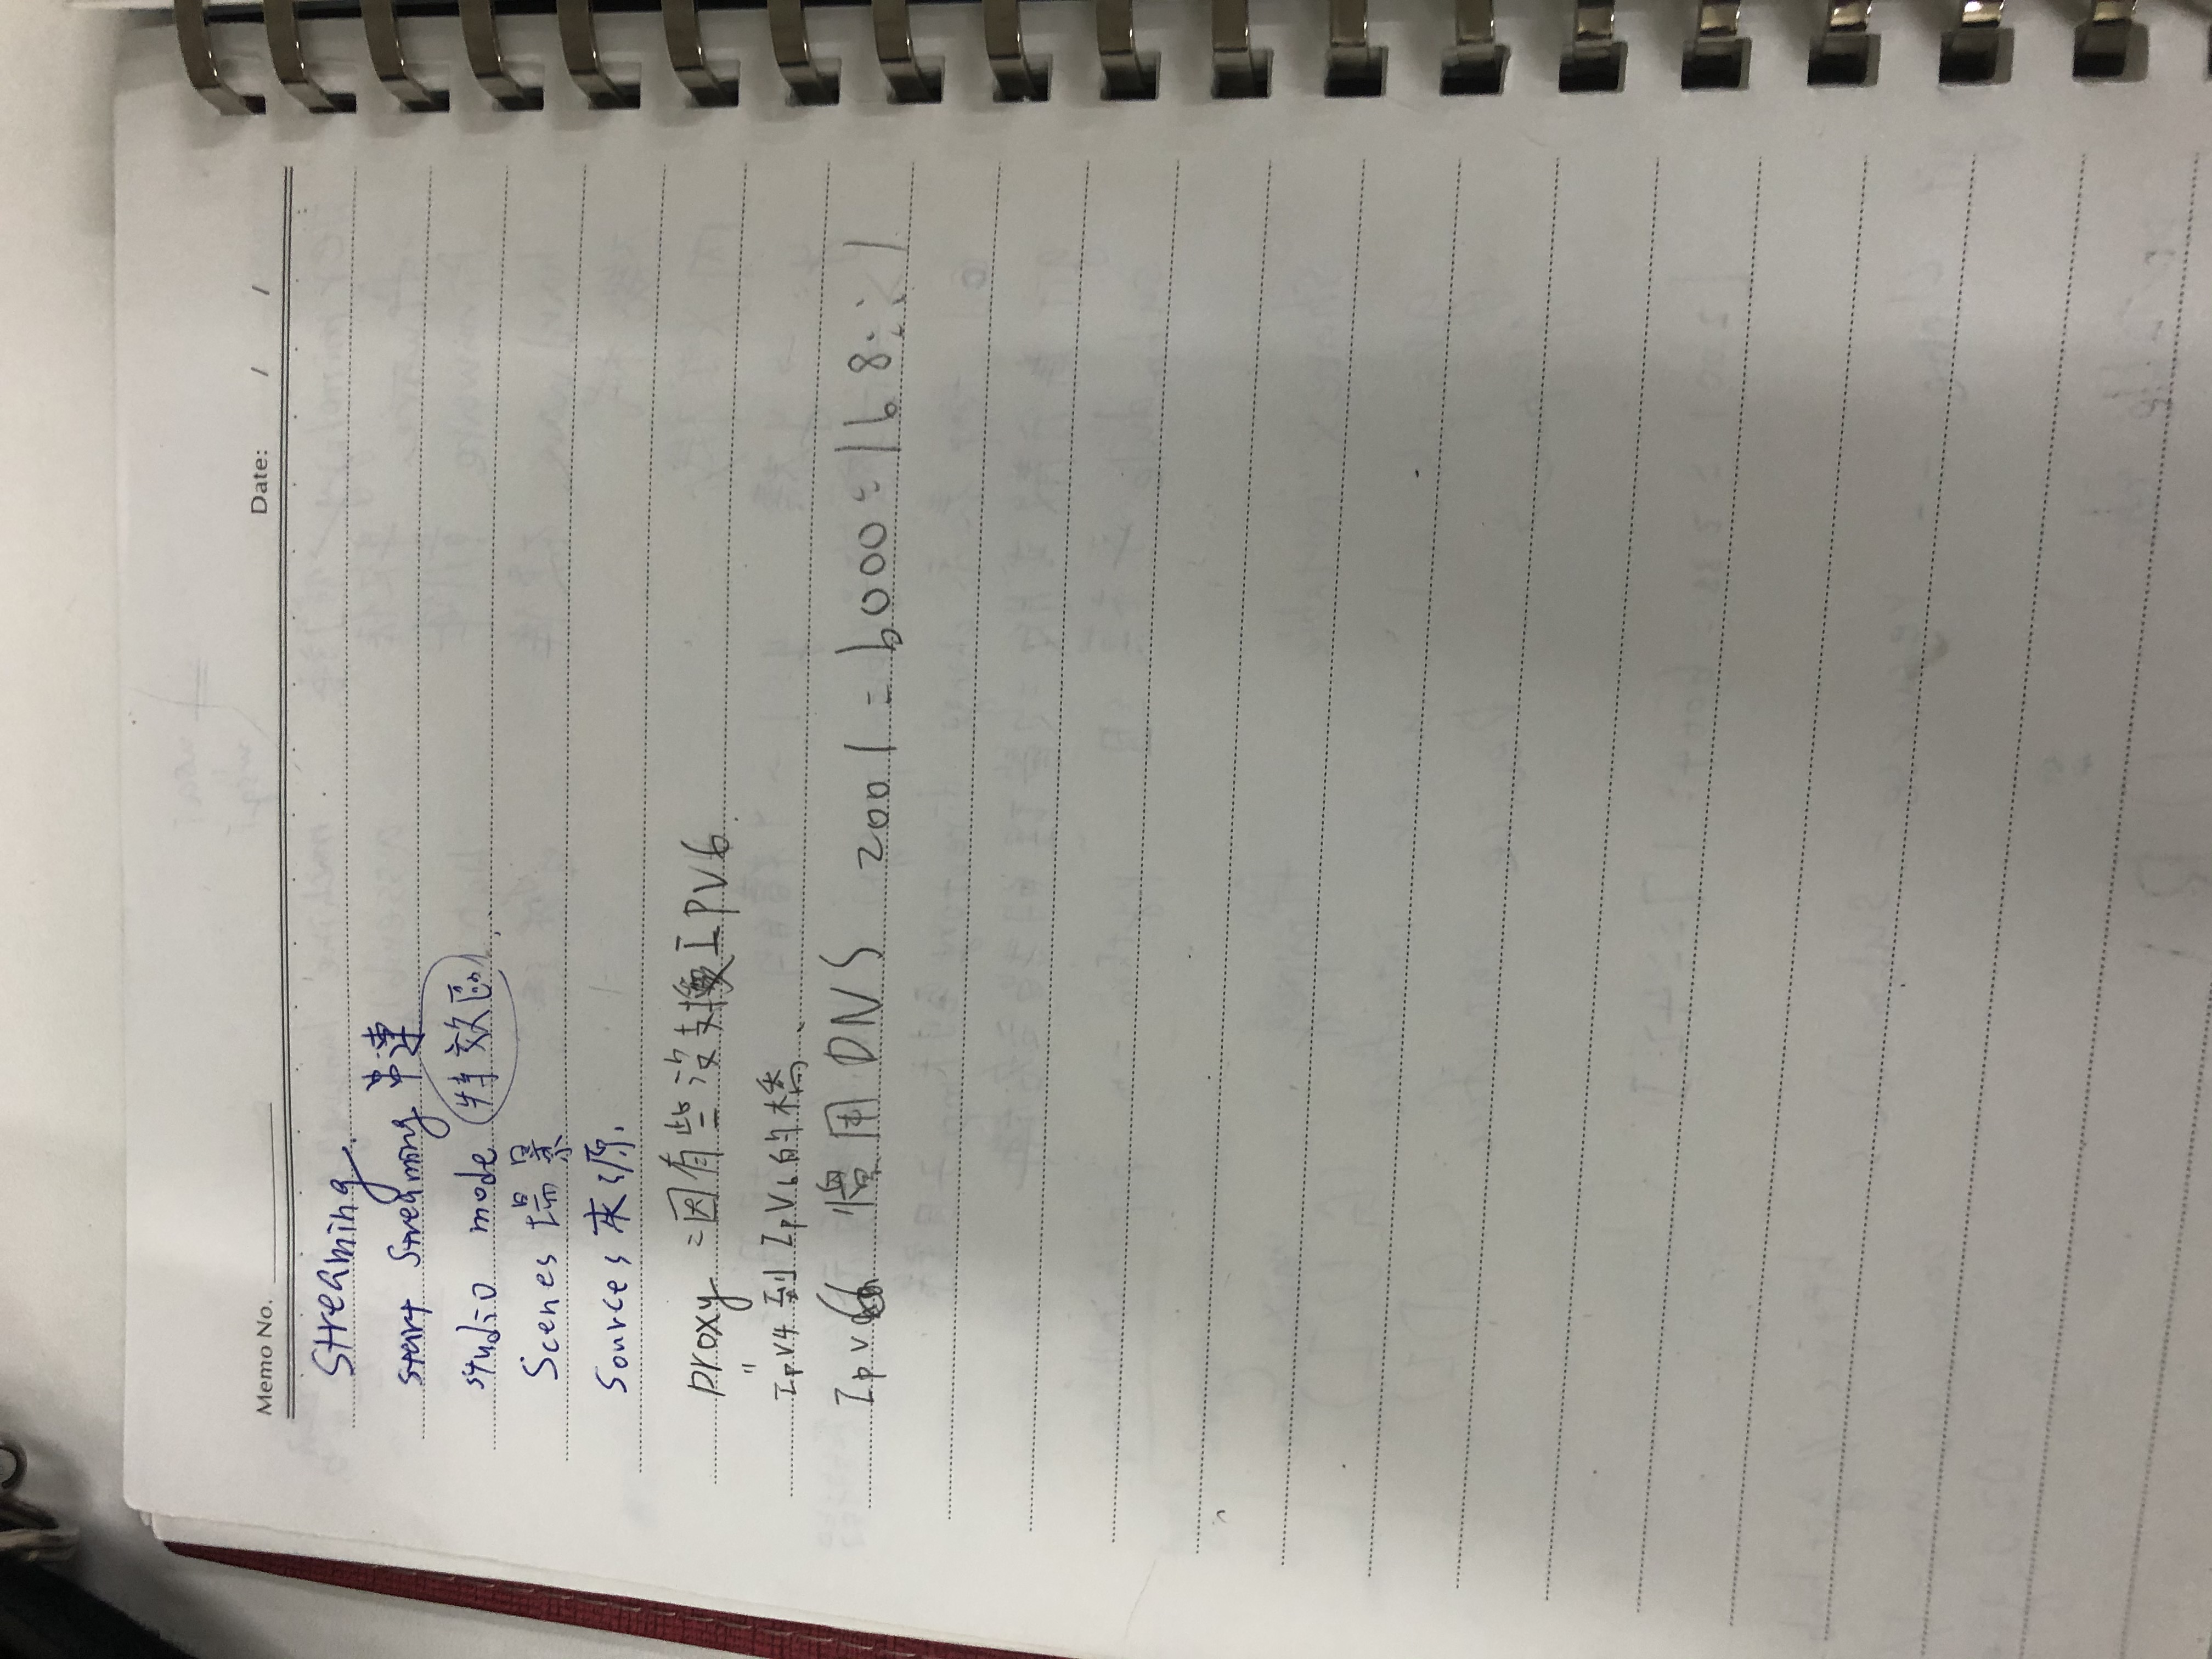 Memo No. Date: / /
Streaming.
start Streaming 串連
studio mode 特效區
Scenes 場景
Sources 來源.
proxy = 因有些沒支援IPV6.
"
IpV4 到 IpV6 的橋、
Ipv6 慣用 DNS 2001 = b000 = 168 : : 1